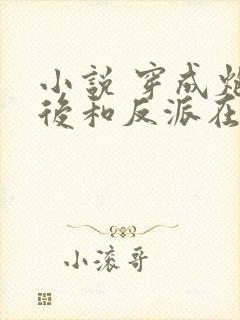 小說 穿成
後和反派在
小滚哥